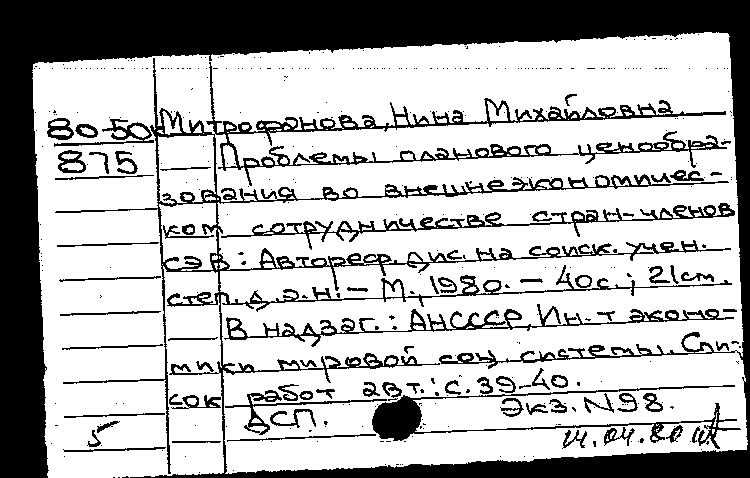 80-50к Митрофанова, Нина Михайловна.
875 Проблемы планового ценообра-
зования во внешнеэкономичес-
ком сотрудничестве стран-членов
СЭВ: Автореф. дис. на соиск. учен.
степ. д.э.н. - М., 1980. - 40с.; 21см.
В надзаг.: АНСССР, Ин-т эконо-
мики мировой соц. системы. Спи-
сок работ авт.: с. 39-40.
ДСП. Экз. N98.
5 14.04.80